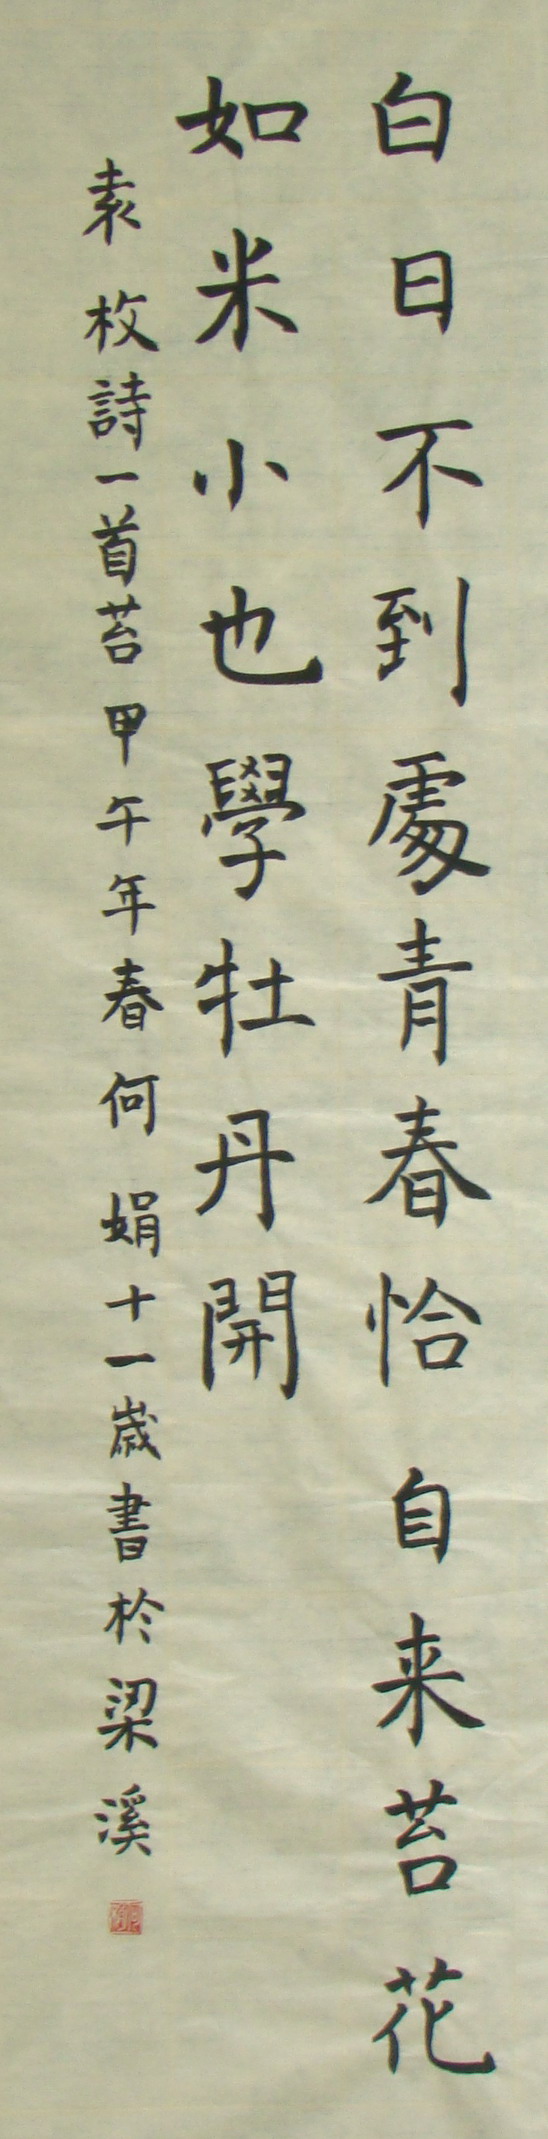 白日不到處青春恰自来苔花
如米小也學牡丹開
袁枚詩一首苔甲午年春何娟十一歲書於梁溪